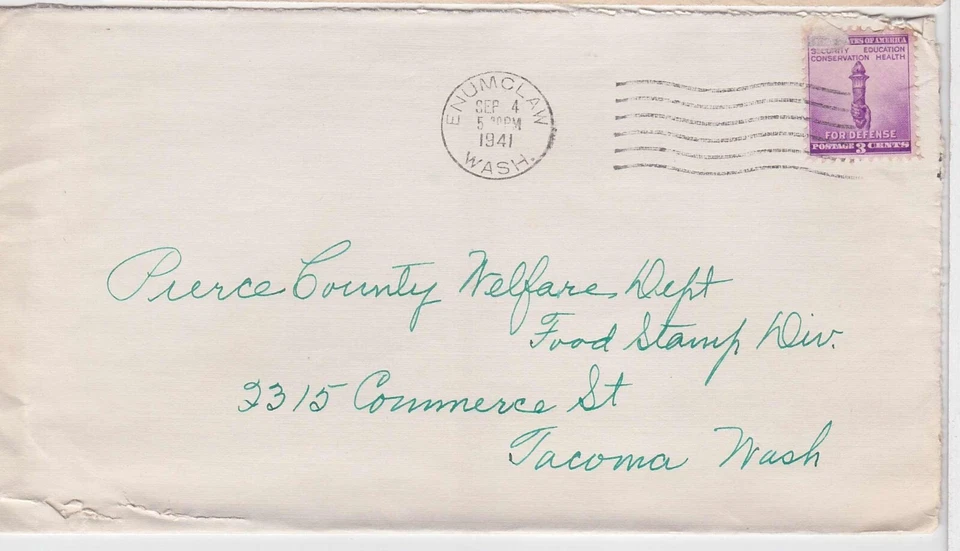 ENUMCLAW
SEP 4
5 PM
1941
WASH.
TES OF AMERICA
SECURITY EDUCATION
CONSERVATION HEALTH
FOR DEFENSE
POSTAGE 3 CENTS
Pierce County Welfare Dept
Food Stamp Div.
3315 Commerce St
Tacoma Wash